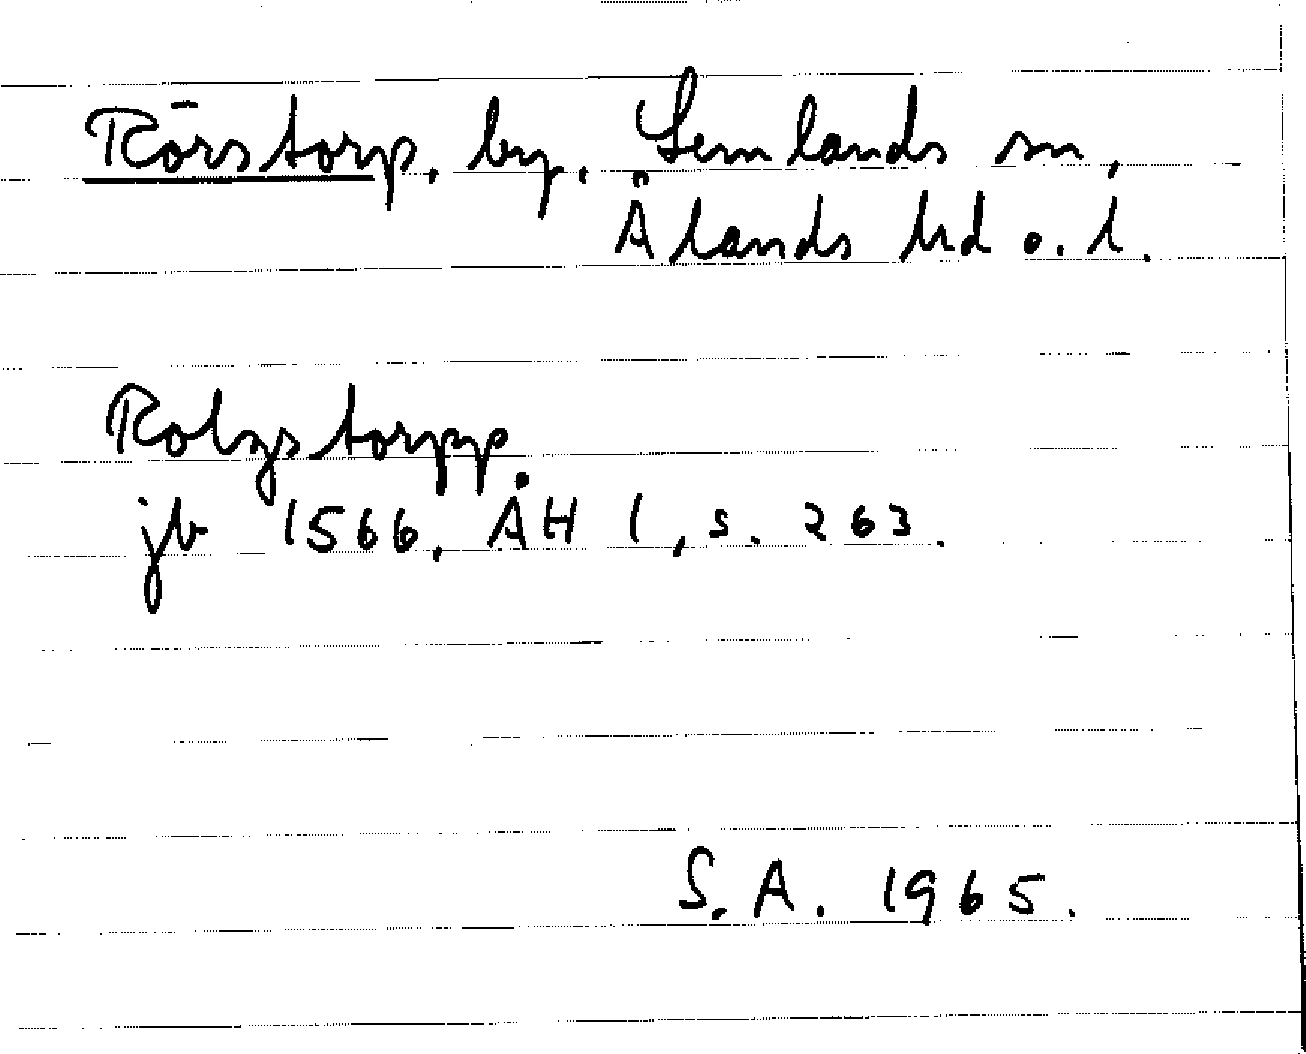 Rörstorp, by, Lemlands sn,
Ålands hd o. l.
Rolzstorpp.
jb 1566, ÅH 1, s. 263.
S.A. 1965.